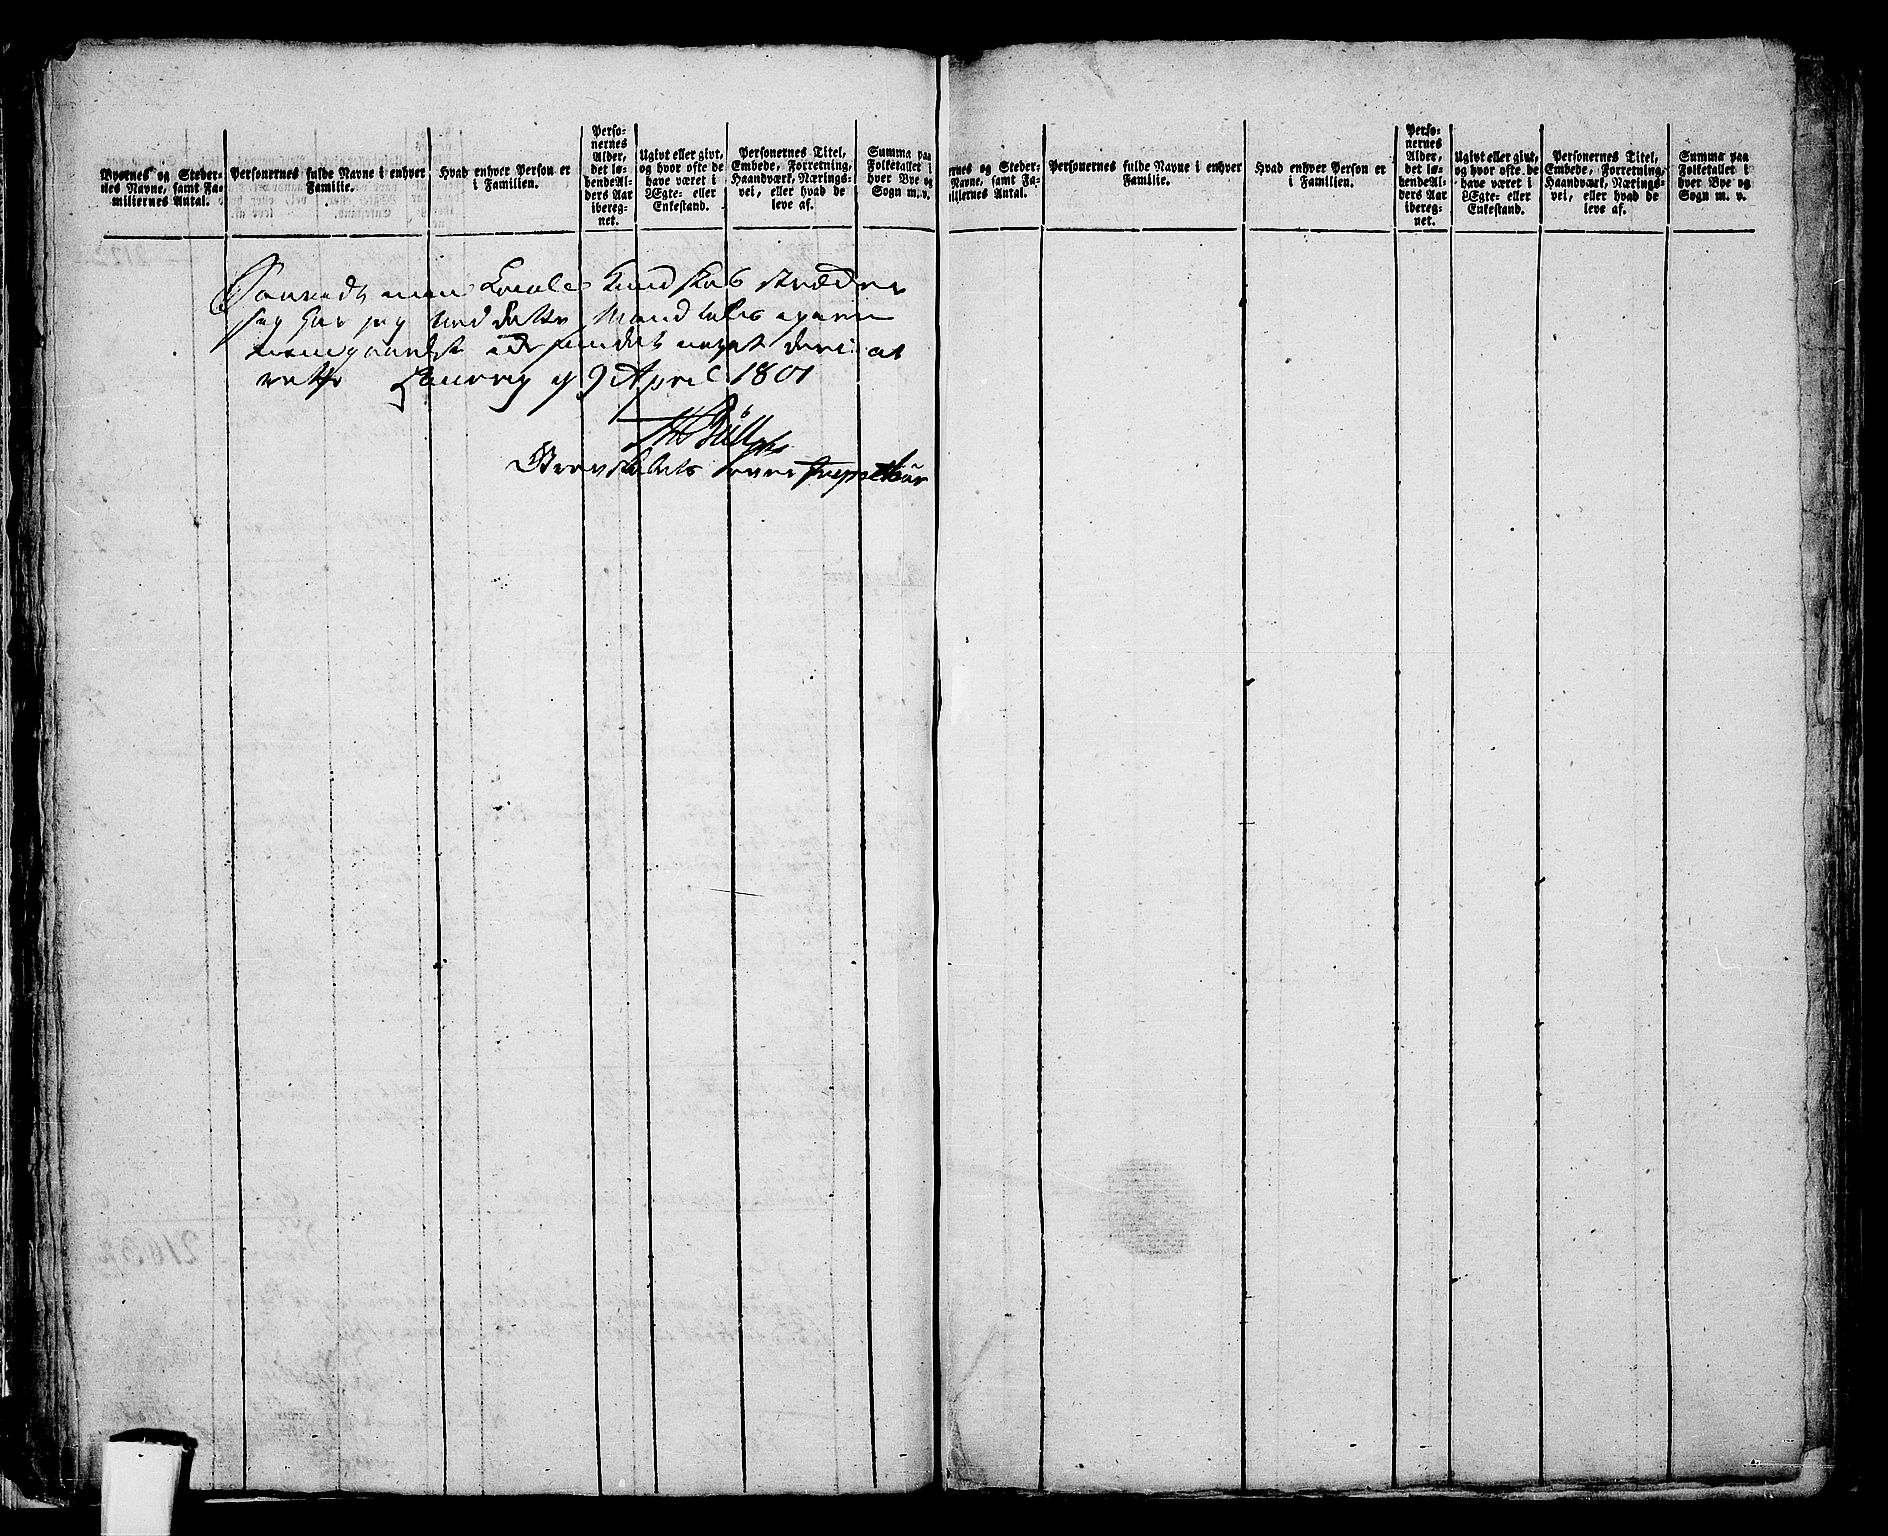 Byernes og Steder-
nes Navne, samt Fa-
miliernes Antal.
Personernes fulde Navne i enhver
Familie.
Hvad enhver Person er
i Familien.
Perso-
nernes
Alder,
det lø-
bende Al-
ders Aar
ibereg-
net.
Ugivt eller givt,
og hvor ofte de
have været i
Ægte- eller
Enkestand.
Personernes Titel,
Embede, Forretning,
Haandværk, Nærings-
vei, eller hvad de
leve af.
Summa paa
Folketallet i
hver Bye og
Sogn m. v.
Saavidt min Locale Kundskab strækker
sig har jeg ved dette Mandtal
at
rette Laurvig 9 April 1801
Grevskabets
ernes og Steder-
Navne, samt Fa-
iliernes Antal.
Personernes fulde Navne i enhver
Familie.
Hvad enhver Person er
i Familien.
Perso-
nernes
Alder,
det lø-
bende Al-
ders Aar
ibereg-
net.
Ugivt eller givt,
og hvor ofte de
have været i
Ægte- eller
Enkestand.
Personernes Titel,
Embede, Forretning,
Haandværk, Nærings-
vei, eller hvad de
leve af.
Summa paa
Folketallet i
hver Bye og
Sogn m. v.